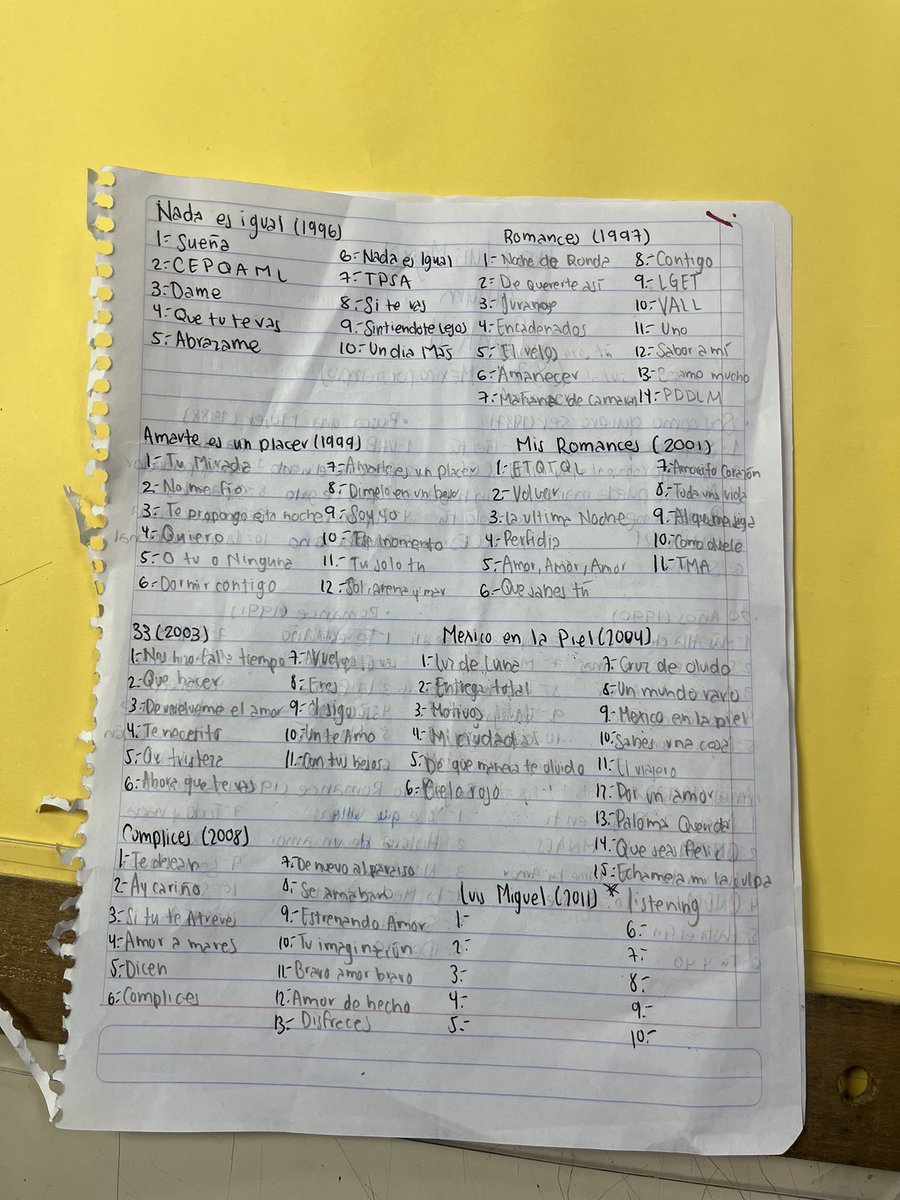 Nada es igual (1996)
1- Sueña
2- CEPQAML
3- Dame
4- Que tu te vas
5- Abrazame
6- Nada es Igual
7- TPSA
8- Si te vas
9- Sintiendote lejos
10- Un dia Más
Romances (1997)
1- Noche de Ronda
2- De quererte así
3-
4- Encadenados
5- El reloj
6- Amanecer
7-
8- Contigo
9- LGET
10- VALL
11- Uno
12- Sabor a mí
13- Besamo mucho
14- PDDLM
Amarte es un placer (1999)
1- Tu Mirada
2- No me fio
3- Te propongo esta noche
4- Quiero
5- O tu o Ninguna
6- Dormir contigo
7- Amarte es un placer
8- Dimelo en un beso
9- Soy yo
10- Ese momento
11- Tu solo tu
12- Sol, arena y mar
Mis Romances (2001)
1- ETQTQL
2- Volver
3- la ultima Noche
4- Perfidia
5- Amor, Amor, Amor
6- Que sabes tú
7- Amorcito Corazón
8- Toda una vida
9- Al que me siga
10- Como duele
11- TMA
33 (2003)
1- Nos hizo falta tiempo
2- Que hacer
3- Devuelveme el amor
4- Te necesito
5- Que tristeza
6- Ahora que te vas
7- Vuelve
8- Eres
9-
10- Un te Amo
11- Con tus besos
Mexico en la Piel (2004)
1- Luz de Luna
2- Entrega total
3- Motivos
4- Mi ciudad
5- De que manera te olvido
6- Cielo rojo
7- Cruz de olvido
8- Un mundo raro
9- Mexico en la piel
10- Sabes una cosa
11- El viajero
12- Por un amor
13- Paloma Querida
14- Que seas feliz
15- Echame a mi la culpa
Complices (2008)
1- Te desean
2- Ay cariño
3- Si tu te Atreves
4- Amor a mares
5- Dicen
6- Complices
7- De nuevo al paraiso
8- Se amaban
9- Estrenando Amor
10- Tu imaginción
11- Bravo amor bravo
12- Amor de hecho
13- Disfreces
Luis Miguel (2011) * listening
1-
2-
3-
4-
5-
6-
7-
8-
9-
10-